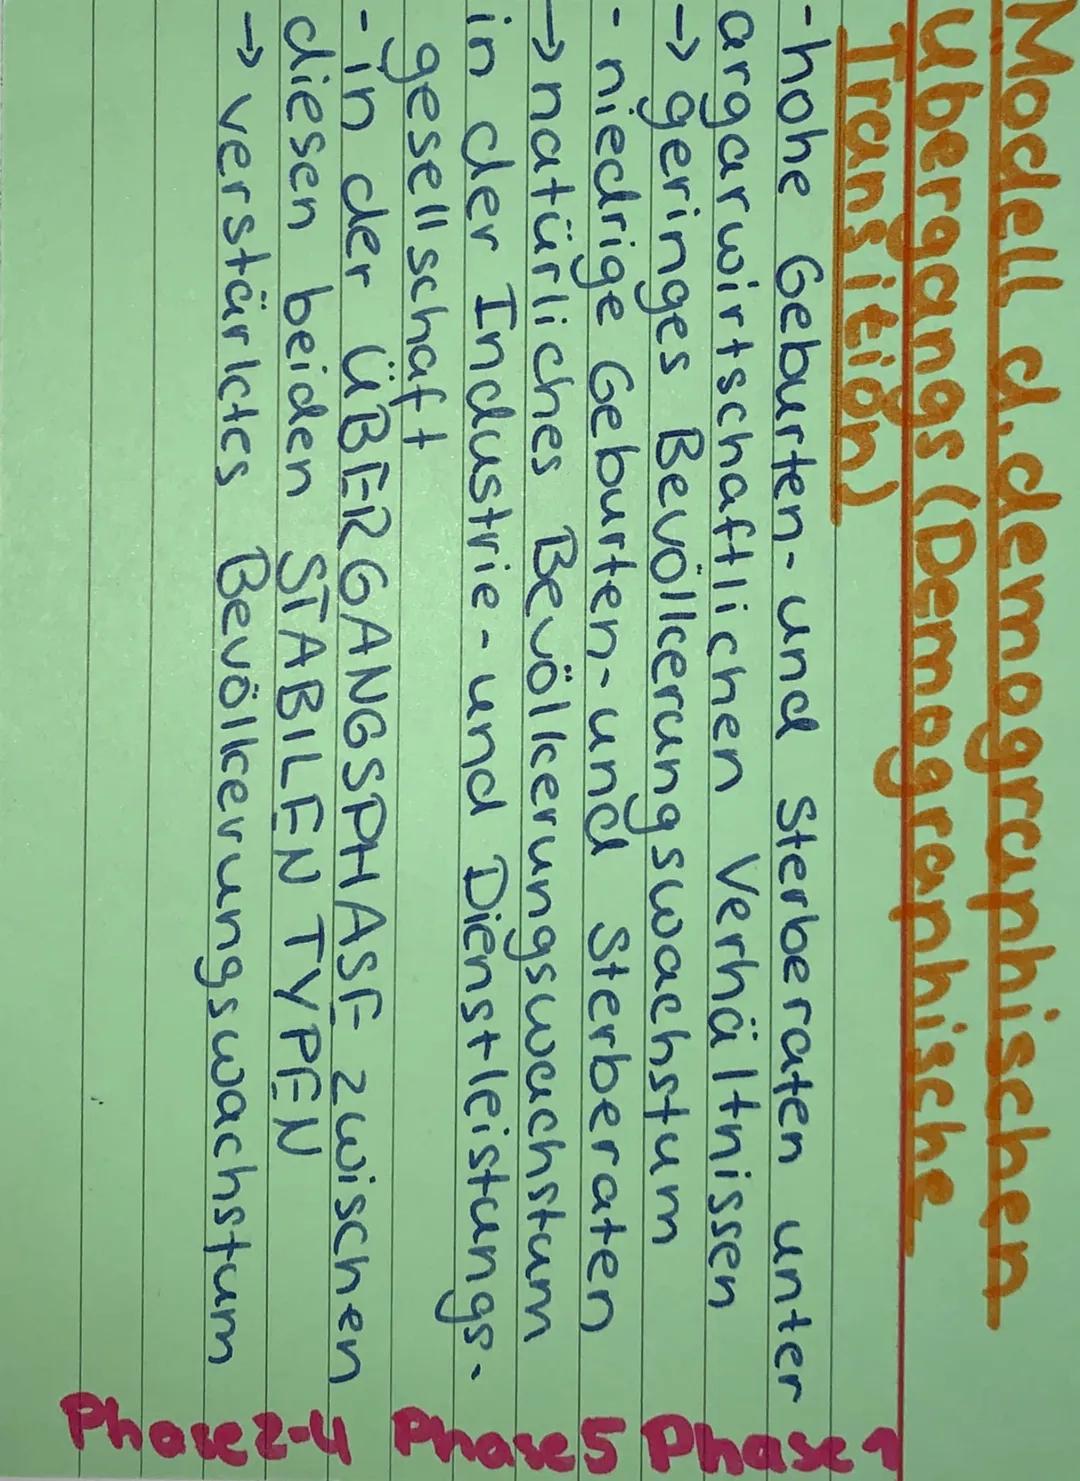 Modell d. demographischen
Übergangs (Demographische
Transition)
-hohe Geburten- und Sterberaten unter
argarwirtschaftlichen Verhältnissen
→ geringes Bevölkerungswachstum
- niedrige Geburten- und Sterberaten
→ natürliches Bevölkerungswachstum
in der Industrie- und Dienstleistungs-
gesellschaft
- in der ÜBERGANGSPHASE zwischen
diesen beiden STABILEN TYPEN
→ verstärktes Bevölkerungswachstum
Phase 1
Phase 5
Phase 2-4